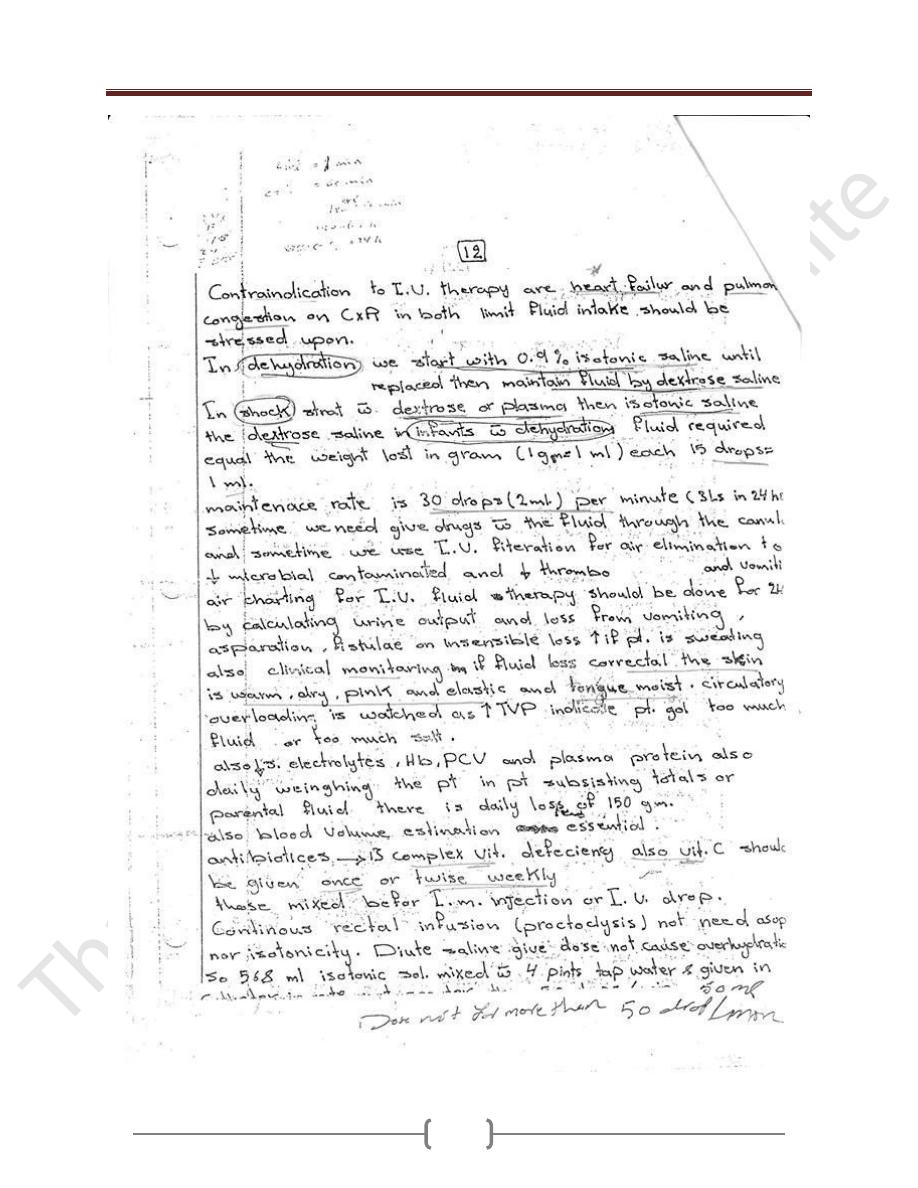 12
Contraindication to I.V. therapy are heart failur and pulmon
congestion on CxR in both limit fluid intake should be
stressed upon.
In dehydration we start with 0.9% isotonic saline until
replaced then maintain fluid by dextrose saline
In shock strat w̄ dextrose or plasma then isotonic saline
the dextrose saline in infants w̄ dehydration fluid required
equal the weight lost in gram (1gm=1ml) each 15 drops=
1 ml.
maintenace rate is 30 drops (2ml) per minute (3Ls in 24 hr
sometime we need give drugs w̄ the fluid through the canul
and sometime we use I.V. fiteration for air elimination to
↓ microbial contaminated and ↓ thrombo and vomiti
air charting for I.V. fluid therapy should be done for 24
by calculating urine output and loss from vomiting,
asparation, fistulae on insensible loss ↑ if pt. is sweating
also clinical monitaring if fluid loss correctal the skin
is warm, dry, pink and elastic and tongue moist. circulatory
overloading is watched as ↑ JVP indicate pt. got too much
fluid or too much salt.
also s. electrolytes, Hb, PCV and plasma protein also
daily weinghing the pt in pt subsisting totals or
parental fluid there is daily loss of 150 gm.
also blood volume estination essential.
antibiotices → B complex vit. defeciency also vit. C shoul
be given once or twise weekly
those mixed befor I.m. injection or I.V. drop.
Continous rectal infusion (proctoclysis) not need asep
nor isotonicity. Diute saline give dose not cause overhydratio
so 568 ml isotonic sol. mixed w̄ 4 pints tap water & given in
50 ml
Dose not for more than 50 drop/
The
ite